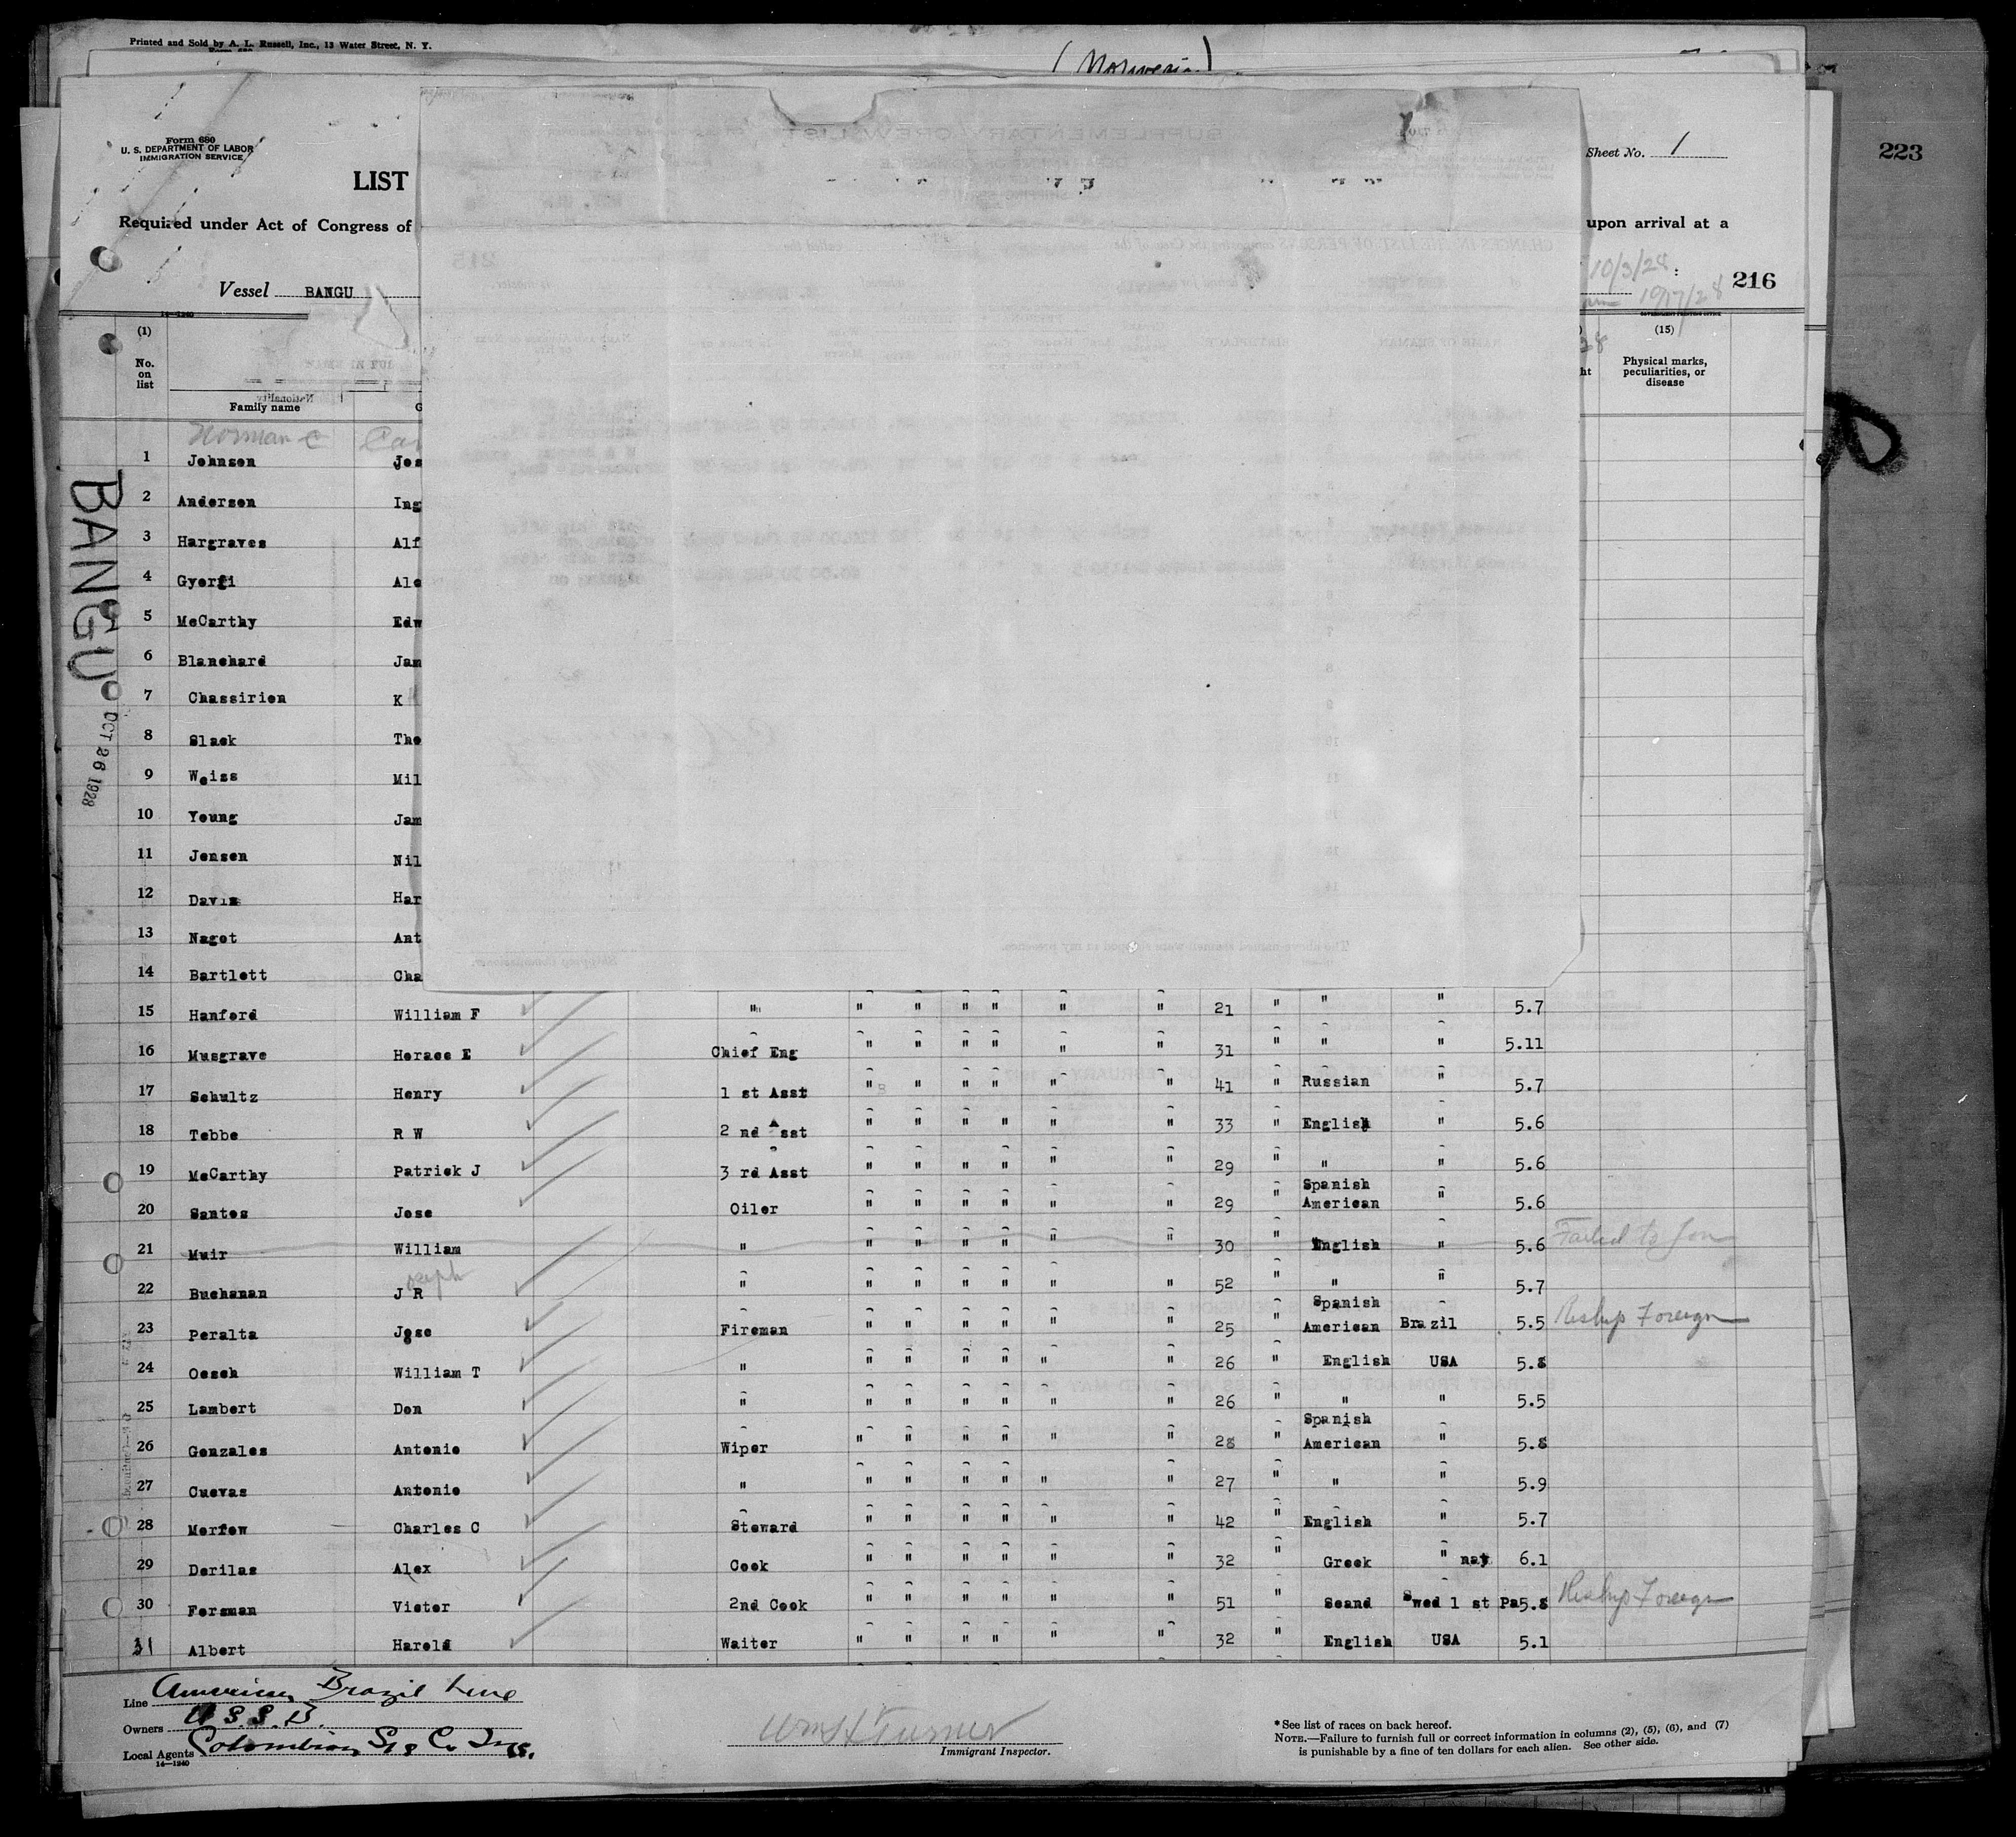 Printed and Sold by A. L. Russell, Inc., 13 Water Street, N. Y.
Form 680
U. S. DEPARTMENT OF LABOR
IMMIGRATION SERVICE
Sheet No. 1
223
LIST
Required under Act of Congress of
upon arrival at a
10/3/28
216
Vessel BANGU
10/17/28
14—1240
GOVERNMENT PRINTING OFFICE
(1)
(15)
No. on list
Physical marks, peculiarities, or disease
Family name
Norman C
1 Johnson Jos
2 Anderson Ing
3 Hargraves Alf
4 Gyorfi Ale
5 McCarthy Edw
6 Blanchard Jam
7 Chassirien K
8 Slack The
9 Weiss Mil
10 Young Jam
11 Jensen Nil
12 Davis Har
13 Nagot Ant
14 Bartlett Cha
15 Hanford William F " " " " " " " 21 " " " 5.7
16 Musgrave Horace E Chief Eng " " " " " " 31 " " " 5.11
17 Schultz Henry 1 st Asst " " " " " " 41 " Russian " 5.7
18 Tebbe R W 2 nd Asst " " " " " " 33 " English " 5.6
19 McCarthy Patrick J 3 rd Asst " " " " " " 29 " " " 5.6
20 Santos Jose Oiler " " " " " " 29 " Spanish American " 5.6
21 Muir William " " " " " " " 30 " English " 5.6 Failed to Join
22 Buchanan J R oseph " " " " " " " 52 " " " 5.7
23 Peralta Jose Fireman " " " " " " 25 " Spanish American Brazil 5.5 Reship Foreign
24 Oesch William T " " " " " " " 26 " English USA 5.8
25 Lambert Don " " " " " " " 26 " " " 5.5
26 Gonzales Antonio Wiper " " " " " " 28 " Spanish American " 5.8
27 Cuevas Antonio " " " " " " " 27 " " " 5.9
28 Morfew Charles C Steward " " " " " " 42 " English " 5.7
29 Derilas Alex Cook " " " " " " 32 " Greek " nat 6.1
30 Forsman Victor 2nd Cook " " " " " " 51 " Scand Swed 1 st Pa 5.8 Reship Foreign
31 Albert Harold Waiter " " " " " " 32 " English USA 5.1
BANGU
OCT 26 1928
Line American Brazil Line
Owners U.S.S.B.
Local Agents Colombian SS Co Inc.
14—1240
Wm H Turner
Immigrant Inspector.
*See list of races on back hereof.
NOTE.—Failure to furnish full or correct information in columns (2), (5), (6), and (7)
is punishable by a fine of ten dollars for each alien. See other side.